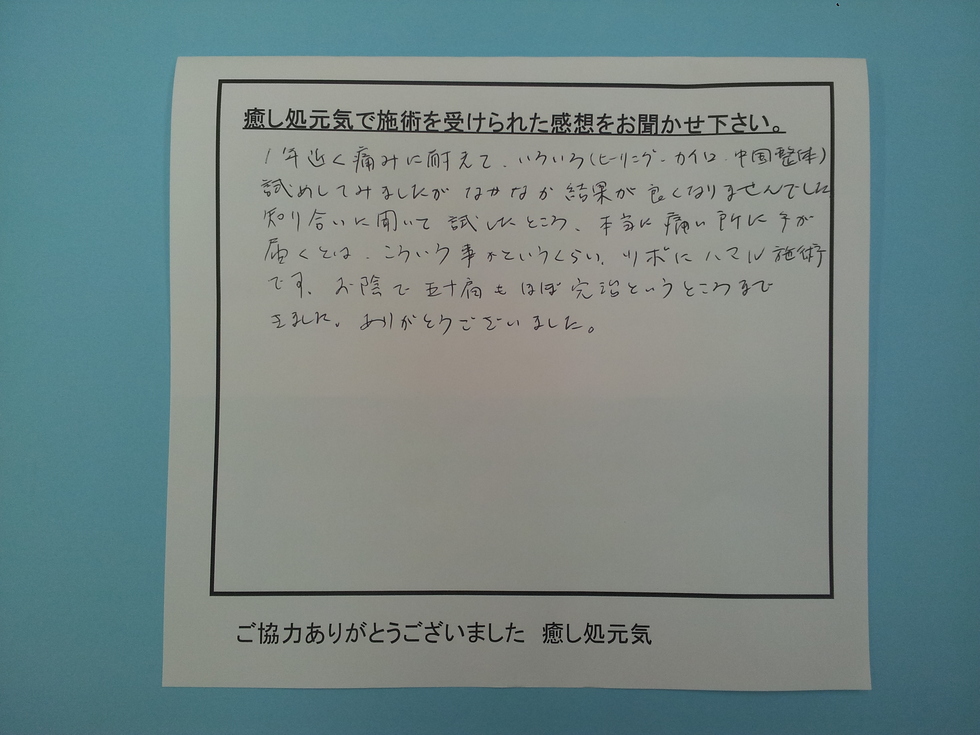 癒し処元気で施術を受けられた感想をお聞かせ下さい。
1年近く痛みに耐えて、いろいろ(ヒーリング・カイロ・中国整体)
試めしてみましたがなかなか結果が良くなりませんでした
知り合いに聞いて試したところ、本当に痛い所に手が
届くとは、こういう事かというくらい、ツボにハマル施術
です。お陰で五十肩もほぼ完治というところまで
きました。ありがとうございました。
ご協力ありがとうございました 癒し処元気